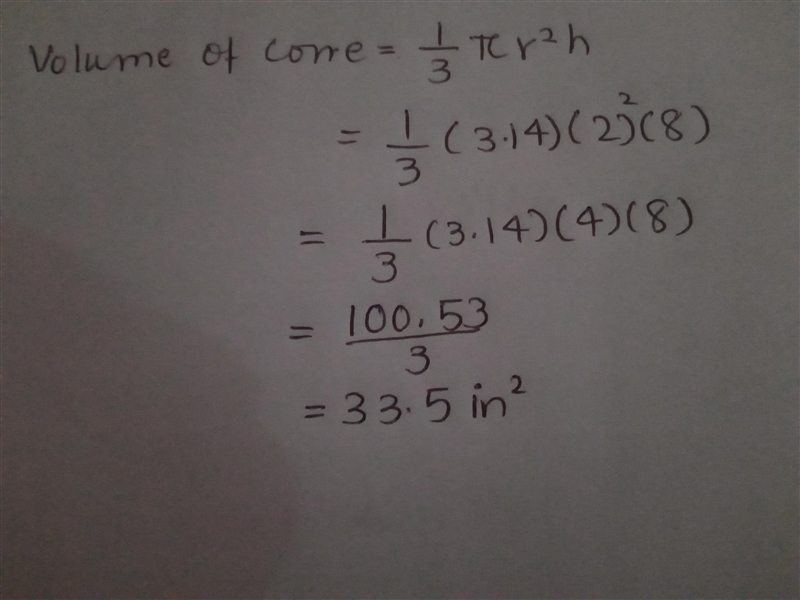 Volume of cone = 1/3 πr²h
= 1/3 (3.14)(2)²(8)
= 1/3 (3.14)(4)(8)
= 100.53/3
= 33.5 in²